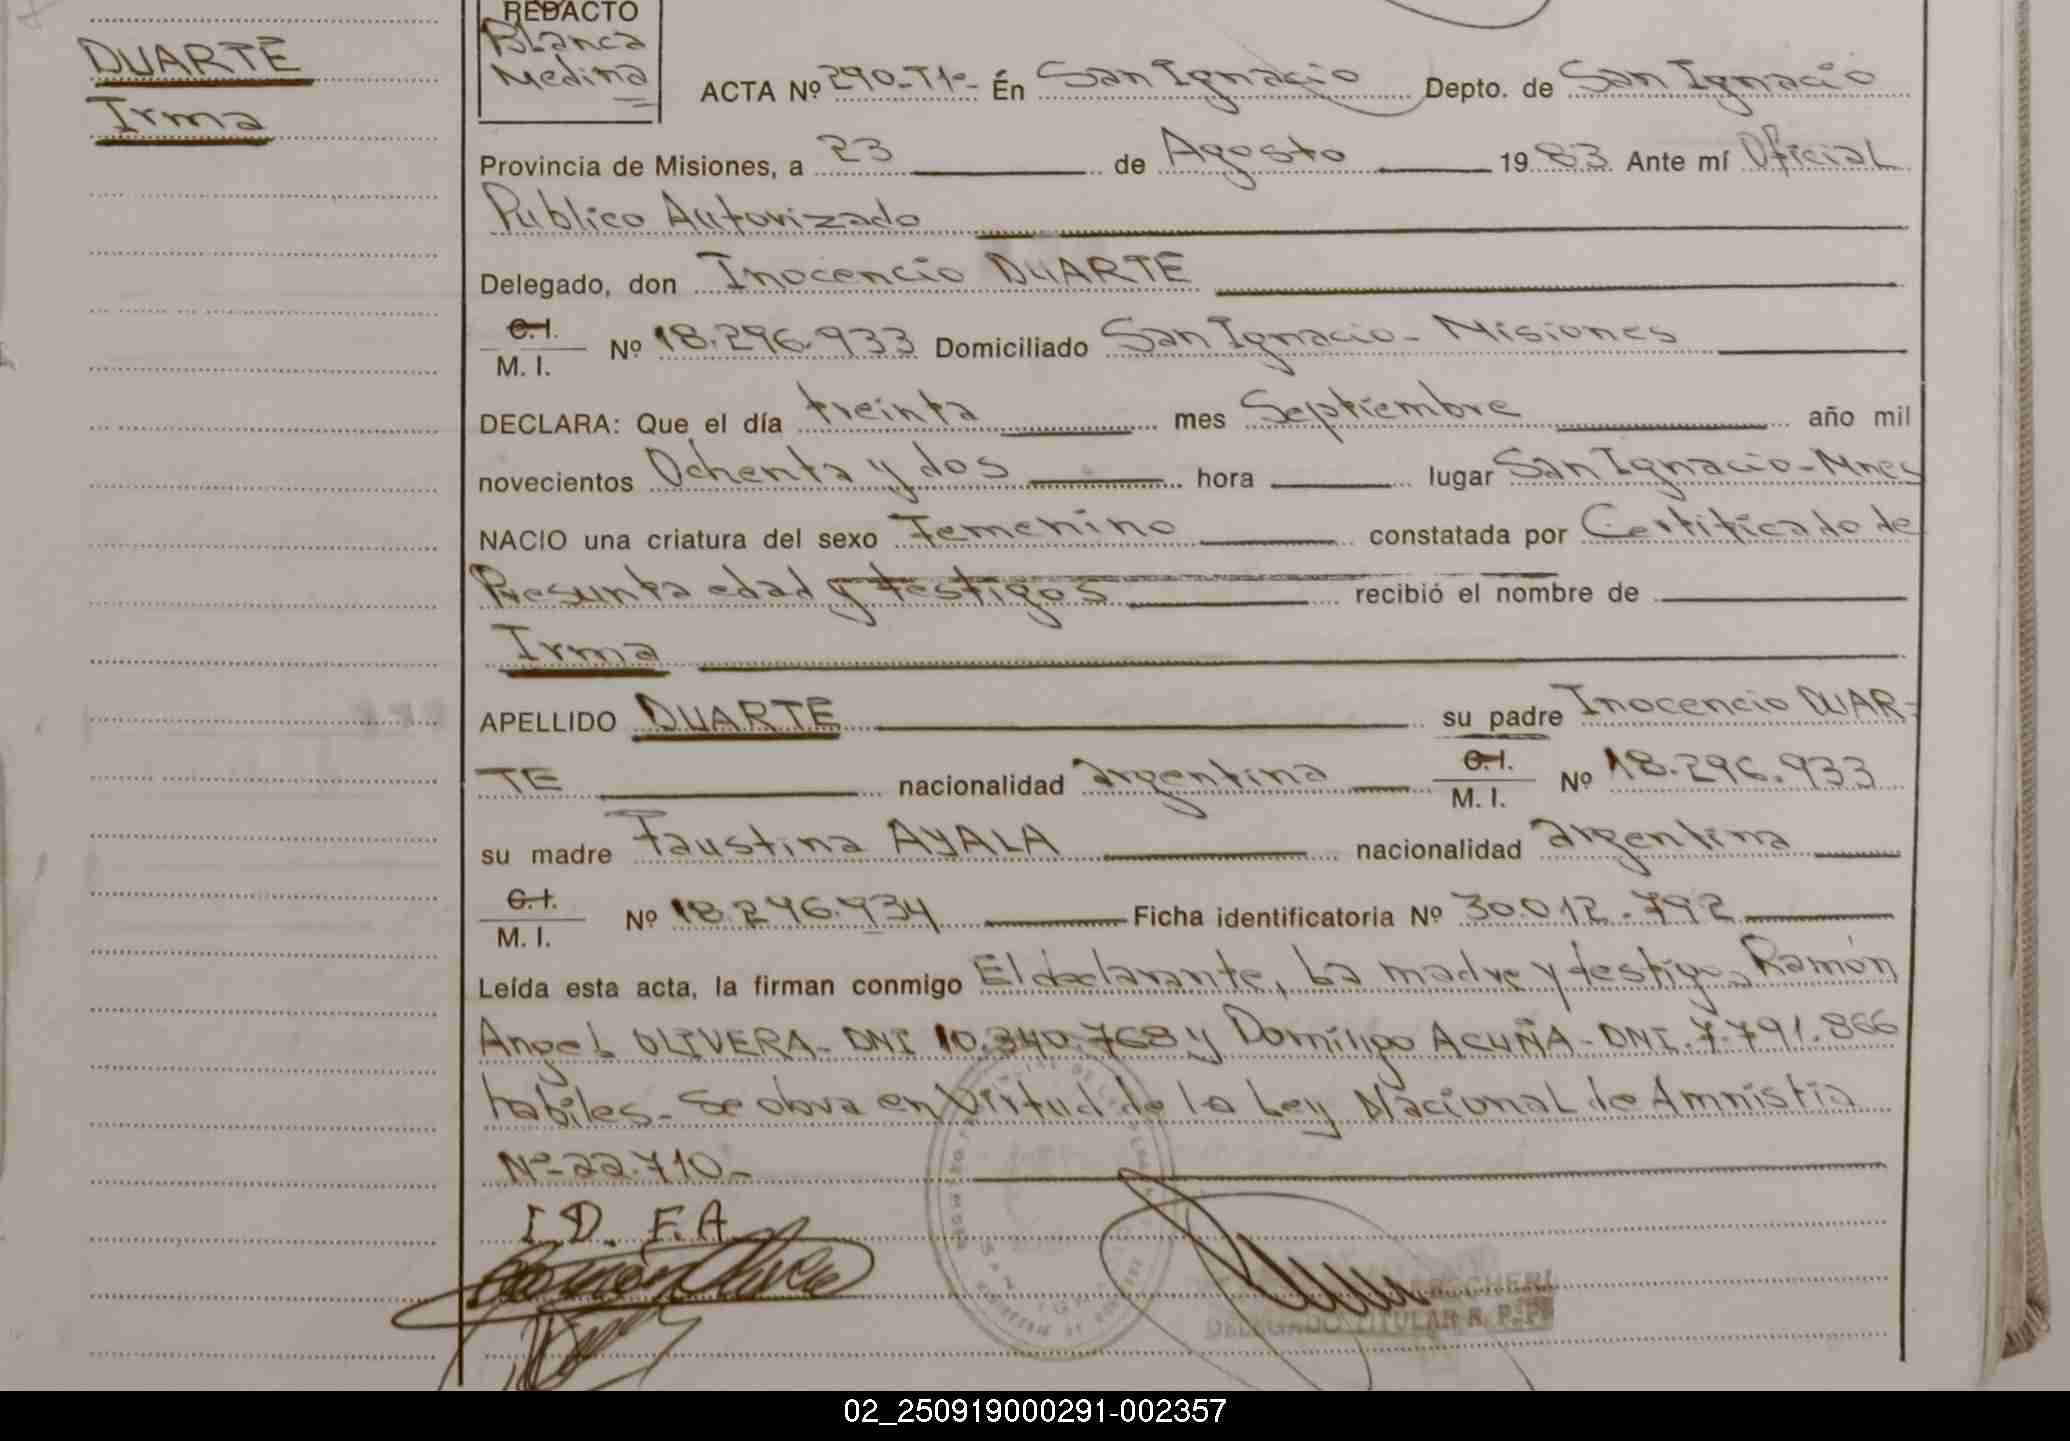 DUARTE
Irma
REDACTO
Blanca
Medina
ACTA Nº 290-Tº1- En San Ignacio Depto. de San Ignacio
Provincia de Misiones, a 23 de Agosto 1983 Ante mí Oficial
Publico Autorizado
Delegado, don Inocencio DUARTE
C.I.
M. I. Nº 18.296.933 Domiciliado San Ignacio- Misiones
DECLARA: Que el día treinta mes Septiembre año mil
novecientos Ochenta y dos hora lugar San Ignacio-Mnes
NACIO una criatura del sexo Femenino constatada por Certificado de
Presunta edad y testigos recibió el nombre de
Irma
APELLIDO DUARTE su padre Inocencio DUAR-
TE nacionalidad argentina C.I. M. I. Nº 18.296.933
su madre Faustina AYALA nacionalidad argentina
C.I.
M. I. Nº 18.296.934 Ficha identificatoria Nº 30.012.792
Leída esta acta, la firman conmigo El declarante, la madre y testigos Ramón
Angel OLIVERA- DNI 10.340.768 y Domingo ACUÑA-DNI.7.791.866
habiles- Se obra en Virtud de la Ley Nacional de Amnistia
Nº-22.710-
I.D. F.A
DELEGADO TITULAR R. P. PP
02_250919000291-002357